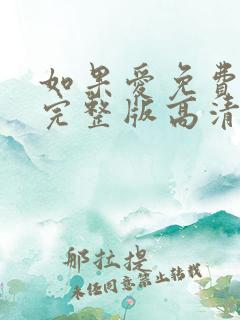 如果愛免費
完整版高清
那拉提
未经同意禁止转载